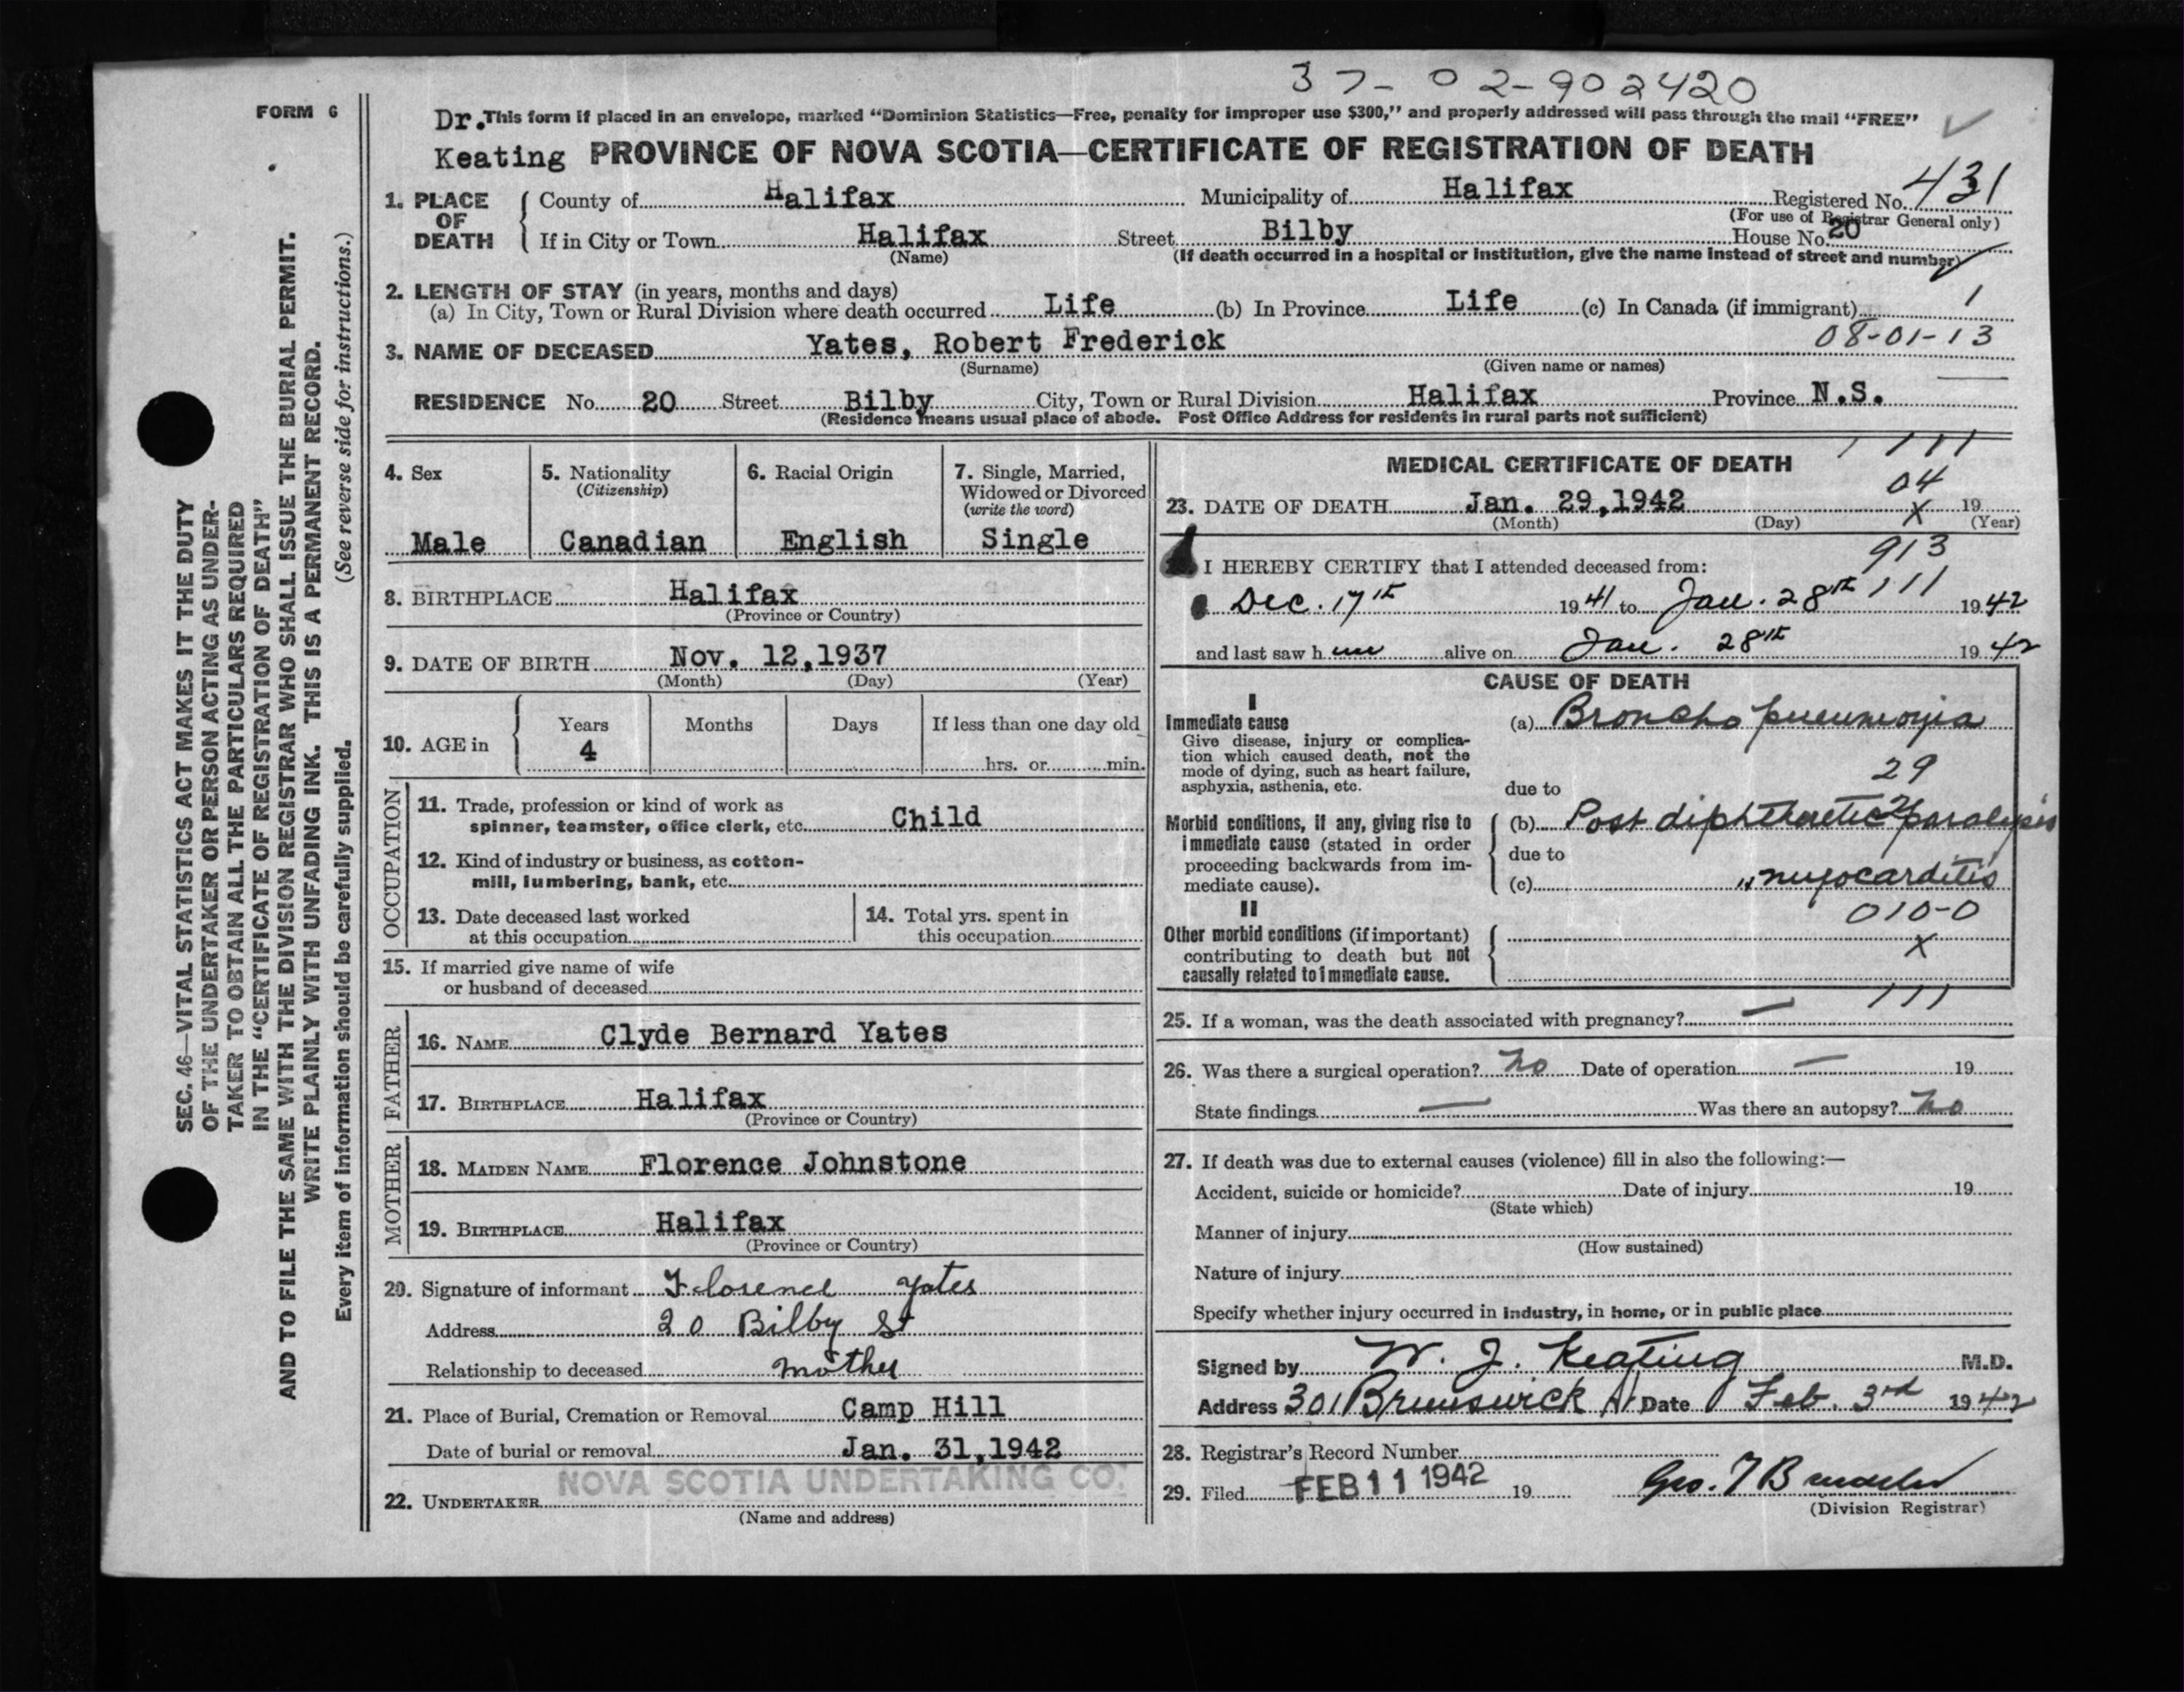 37-02-902420
FORM 6
Dr. This form if placed in an envelope, marked "Dominion Statistics—Free, penalty for improper use $300," and properly addressed will pass through the mail "FREE"
Keating PROVINCE OF NOVA SCOTIA—CERTIFICATE OF REGISTRATION OF DEATH
1. PLACE OF DEATH County of Halifax Municipality of Halifax Registered No. 431
(For use of Registrar General only)
If in City or Town Halifax Street Bilby House No. 20
(Name) (If death occurred in a hospital or institution, give the name instead of street and number)
2. LENGTH OF STAY (in years, months and days)
(a) In City, Town or Rural Division where death occurred Life (b) In Province Life (c) In Canada (if immigrant) 1
08-01-13
3. NAME OF DECEASED Yates, Robert Frederick
(Surname) (Given name or names)
RESIDENCE No. 20 Street Bilby City, Town or Rural Division Halifax Province N.S.
(Residence means usual place of abode. Post Office Address for residents in rural parts not sufficient)
4. Sex
Male
5. Nationality
(Citizenship)
Canadian
6. Racial Origin
English
7. Single, Married,
Widowed or Divorced
(write the word)
Single
8. BIRTHPLACE Halifax
(Province or Country)
9. DATE OF BIRTH Nov. 12,1937
(Month) (Day) (Year)
10. AGE in Years Months Days If less than one day old
4 hrs. or min.
OCCUPATION
11. Trade, profession or kind of work as
spinner, teamster, office clerk, etc. Child
12. Kind of industry or business, as cotton-
mill, lumbering, bank, etc.
13. Date deceased last worked
at this occupation
14. Total yrs. spent in
this occupation
15. If married give name of wife
or husband of deceased
FATHER
16. NAME Clyde Bernard Yates
17. BIRTHPLACE Halifax
(Province or Country)
MOTHER
18. MAIDEN NAME Florence Johnstone
19. BIRTHPLACE Halifax
(Province or Country)
20. Signature of informant Florence Yates
Address 20 Bilby St
Relationship to deceased mother
21. Place of Burial, Cremation or Removal Camp Hill
Date of burial or removal Jan. 31,1942
NOVA SCOTIA UNDERTAKING CO.
22. UNDERTAKER
(Name and address)
111
MEDICAL CERTIFICATE OF DEATH
04
23. DATE OF DEATH Jan. 29,1942 X 19
(Month) (Day) (Year)
913
I HEREBY CERTIFY that I attended deceased from:
Dec. 17th 1941 to Jan. 28th 111 1942
and last saw h im alive on Jan. 28th 1942
CAUSE OF DEATH
I
Immediate cause (a) Broncho pneumonia
Give disease, injury or complica-
tion which caused death, not the
mode of dying, such as heart failure,
asphyxia, asthenia, etc.
29
due to
Morbid conditions, if any, giving rise to
immediate cause (stated in order
proceeding backwards from im-
mediate cause).
(b) Post diphtheretic paralysis
due to
(c) " myocarditis
010-0
II
Other morbid conditions (if important)
contributing to death but not
causally related to immediate cause.
X
111
25. If a woman, was the death associated with pregnancy? —
26. Was there a surgical operation? No Date of operation — 19
State findings — Was there an autopsy? No
27. If death was due to external causes (violence) fill in also the following:—
Accident, suicide or homicide? Date of injury 19
(State which)
Manner of injury
(How sustained)
Nature of injury
Specify whether injury occurred in industry, in home, or in public place
Signed by W. J. Keating M.D.
Address 301 Brunswick St Date Feb. 3rd 1942
28. Registrar's Record Number
29. Filed FEB 11 1942 19
(Division Registrar)
SEC. 46—VITAL STATISTICS ACT MAKES IT THE DUTY
OF THE UNDERTAKER OR PERSON ACTING AS UNDER-
TAKER TO OBTAIN ALL THE PARTICULARS REQUIRED
IN THE "CERTIFICATE OF REGISTRATION OF DEATH"
AND TO FILE THE SAME WITH THE DIVISION REGISTRAR WHO SHALL ISSUE THE BURIAL PERMIT.
WRITE PLAINLY WITH UNFADING INK. THIS IS A PERMANENT RECORD.
Every item of information should be carefully supplied. (See reverse side for instructions.)